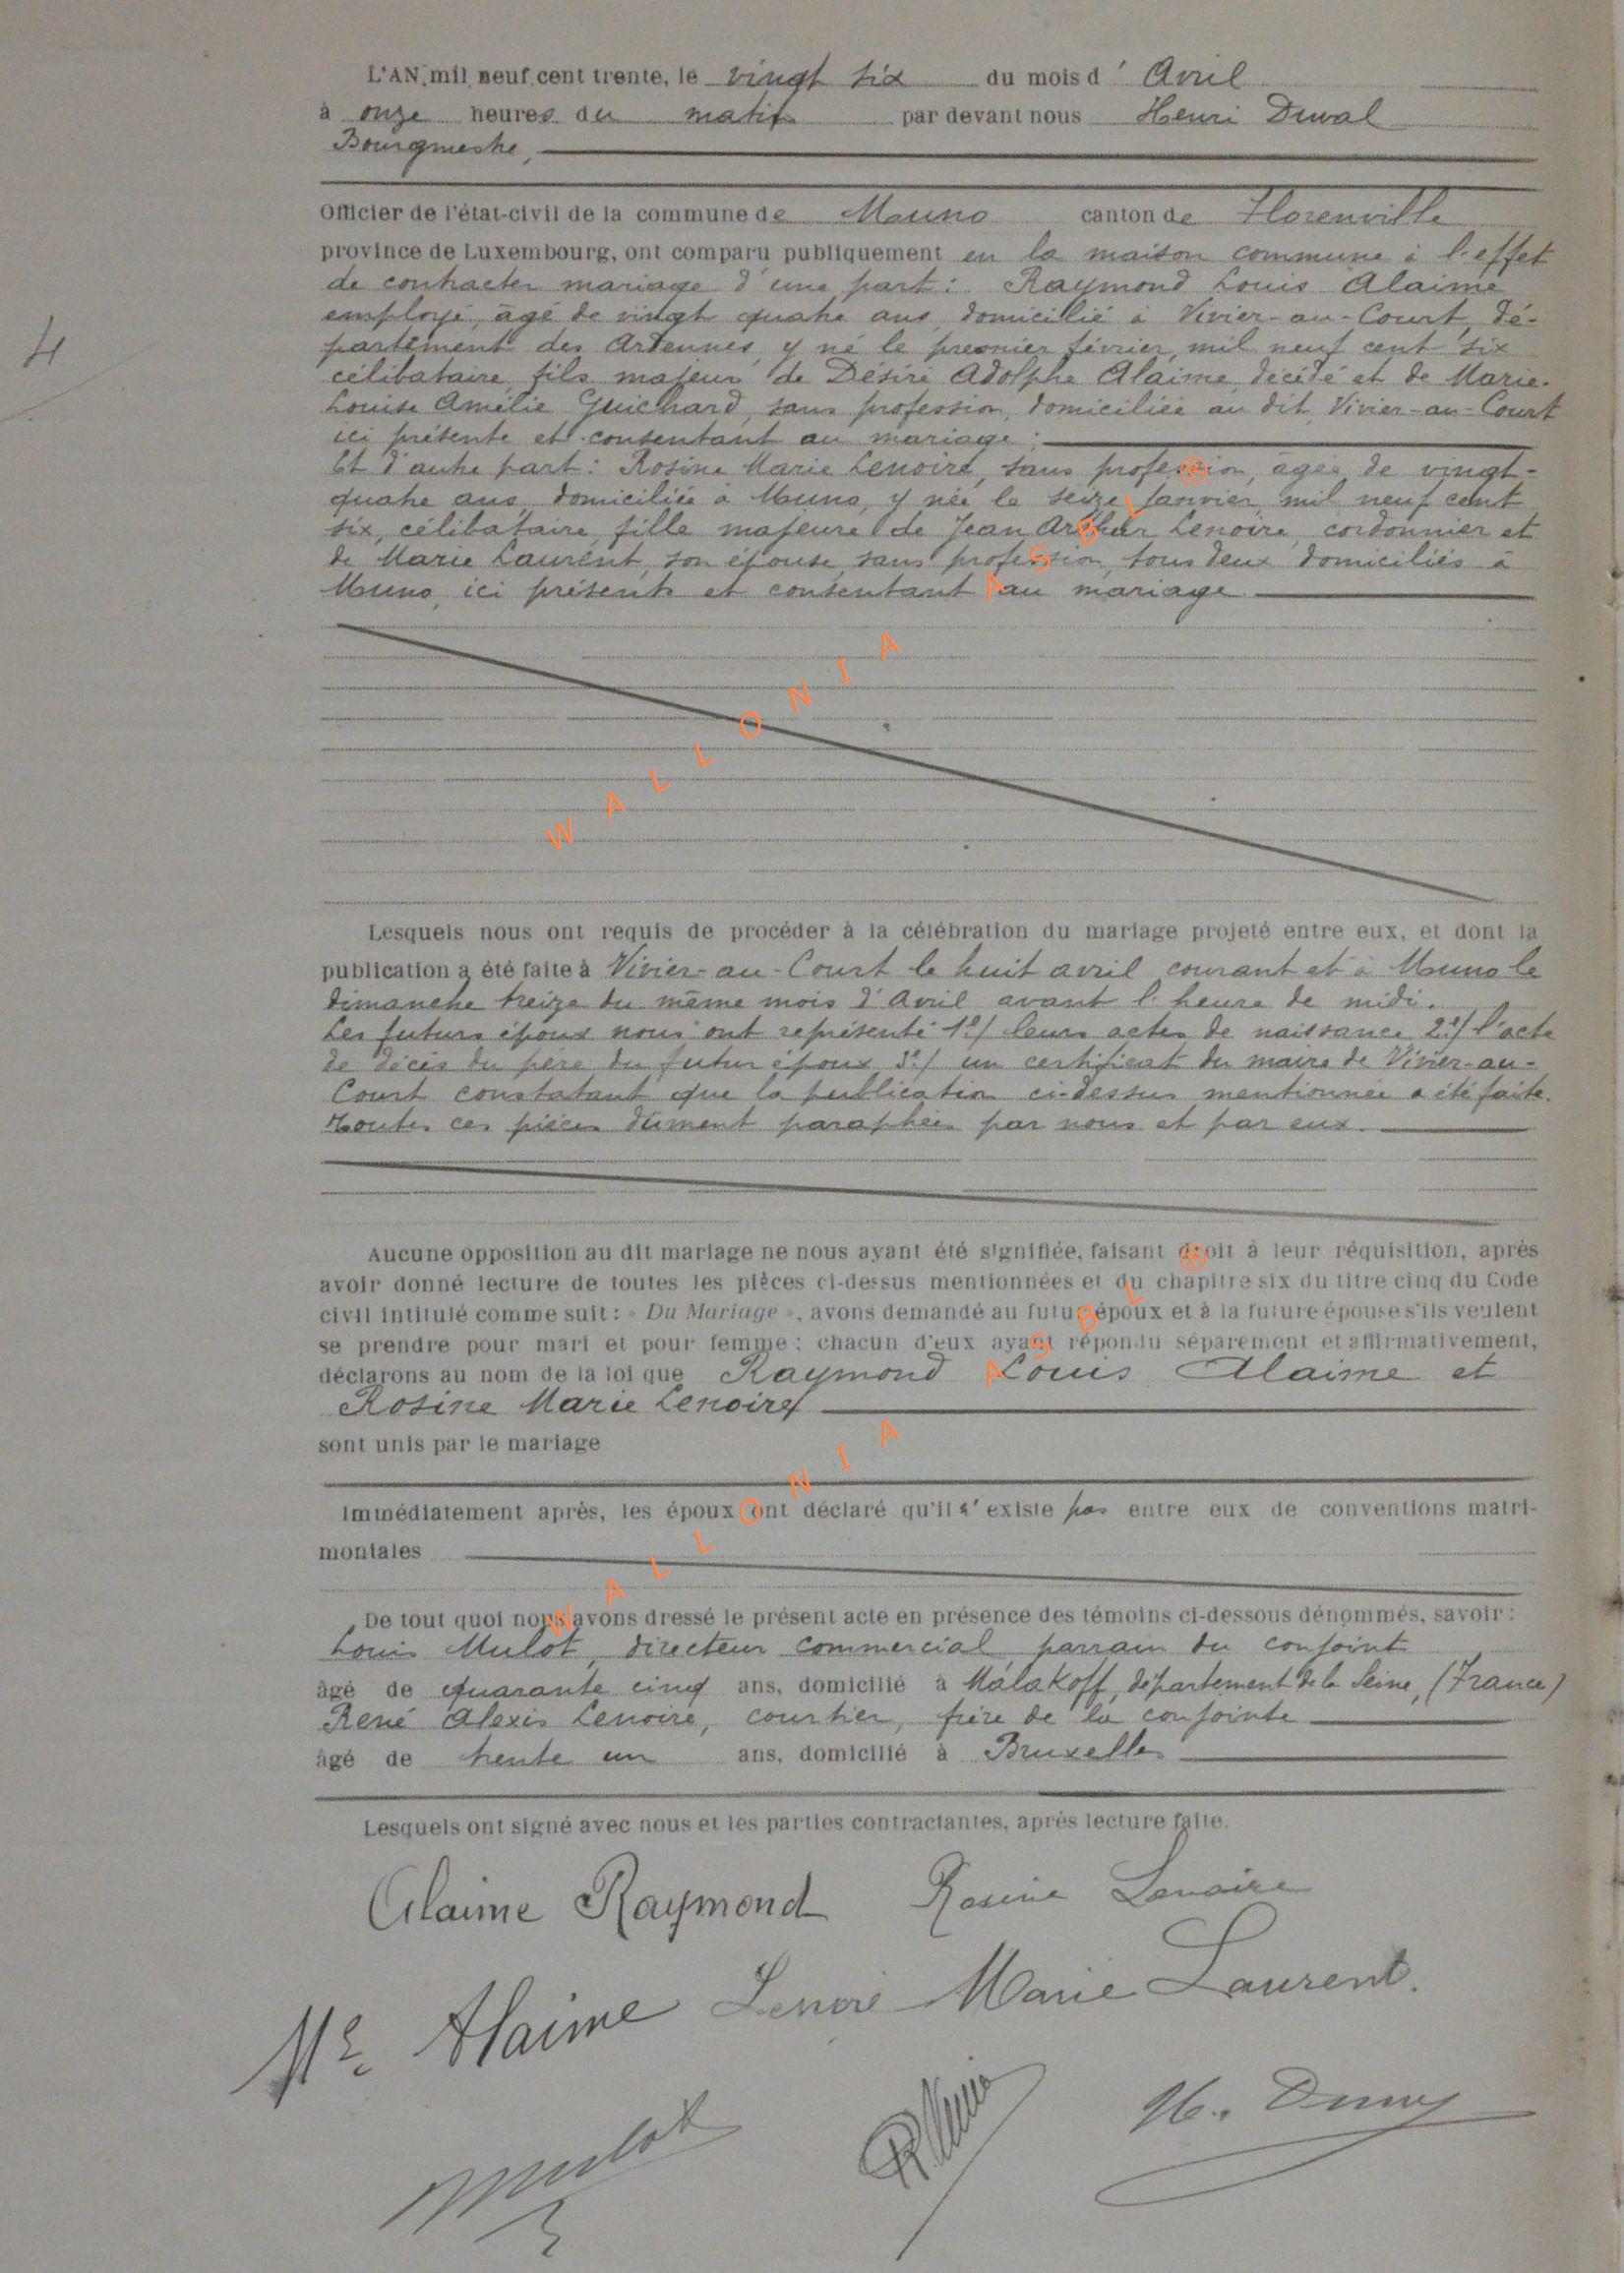 4
L'AN mil neuf cent trente, le vingt six du mois d' Avril
à onze heures du matin par devant nous Henri Duval
Bourgmestre,
Officier de l'état-civil de la commune de Muno canton de Florenville
province de Luxembourg, ont comparu publiquement en la maison commune à l'effet
de contracter mariage d'une part : Raymond Louis Alaime
employé, âgé de vingt quatre ans, domicilié à Vivier-au-Court, dé-
partement des Ardennes, y né le premier février, mil neuf cent six
célibataire, fils majeur de Désiré Adolphe Alaime, décédé et de Marie-
Louise Amélie Guichard, sans profession, domiciliée au dit Vivier-au-Court
ici présente et consentant au mariage :
Et d'autre part : Rosine Marie Lenoire, sans profession, âgée de vingt-
quatre ans, domiciliée à Muno, y née le seize Janvier mil neuf cent
six, célibataire, fille majeure de Jean Arthur Lenoire, cordonnier et
de Marie Laurent, son épouse, sans profession, tous deux domiciliés à
Muno, ici présents et consentant au mariage.
WALLONIA ASBL ®
Lesquels nous ont requis de procéder à la célébration du mariage projeté entre eux, et dont la
publication a été faite à Vivier-au-Court le huit avril courant et à Muno le
dimanche treize du même mois d'Avril avant l'heure de midi.
Les futurs époux nous ont représenté 1º/ leurs actes de naissance 2º/ l'acte
de décès du père du futur époux 3º/ un certificat du maire de Vivier-au-
Court constatant que la publication ci-dessus mentionnée a été faite.
Toutes ces pièces dûment paraphées par nous et par eux.
Aucune opposition au dit mariage ne nous ayant été signifiée, faisant droit à leur réquisition, après
avoir donné lecture de toutes les pièces ci-dessus mentionnées et du chapitre six du titre cinq du Code
civil intitulé comme suit : « Du Mariage », avons demandé au futur époux et à la future épouse s'ils veulent
se prendre pour mari et pour femme ; chacun d'eux ayant répondu séparement et affirmativement,
déclarons au nom de la loi que Raymond Louis Alaime et
Rosine Marie Lenoire
sont unis par le mariage
WALLONIA ASBL ®
Immédiatement après, les époux ont déclaré qu'il n'existe pas entre eux de conventions matri-
moniales
De tout quoi nous avons dressé le présent acte en présence des témoins ci-dessous dénommés, savoir :
Louis Mulot, directeur commercial, parrain du conjoint
âgé de quarante cinq ans, domicilié à Malakoff, département de la Seine, (France)
René Alexis Lenoire, courtier, frère de la conjointe
âgé de trente un ans, domicilié à Bruxelles
Lesquels ont signé avec nous et les parties contractantes, après lecture faite.
Alaime Raymond Rosine Lenoire
Me Alaime Lenoire Marie Laurent.
Mulot H. Duval